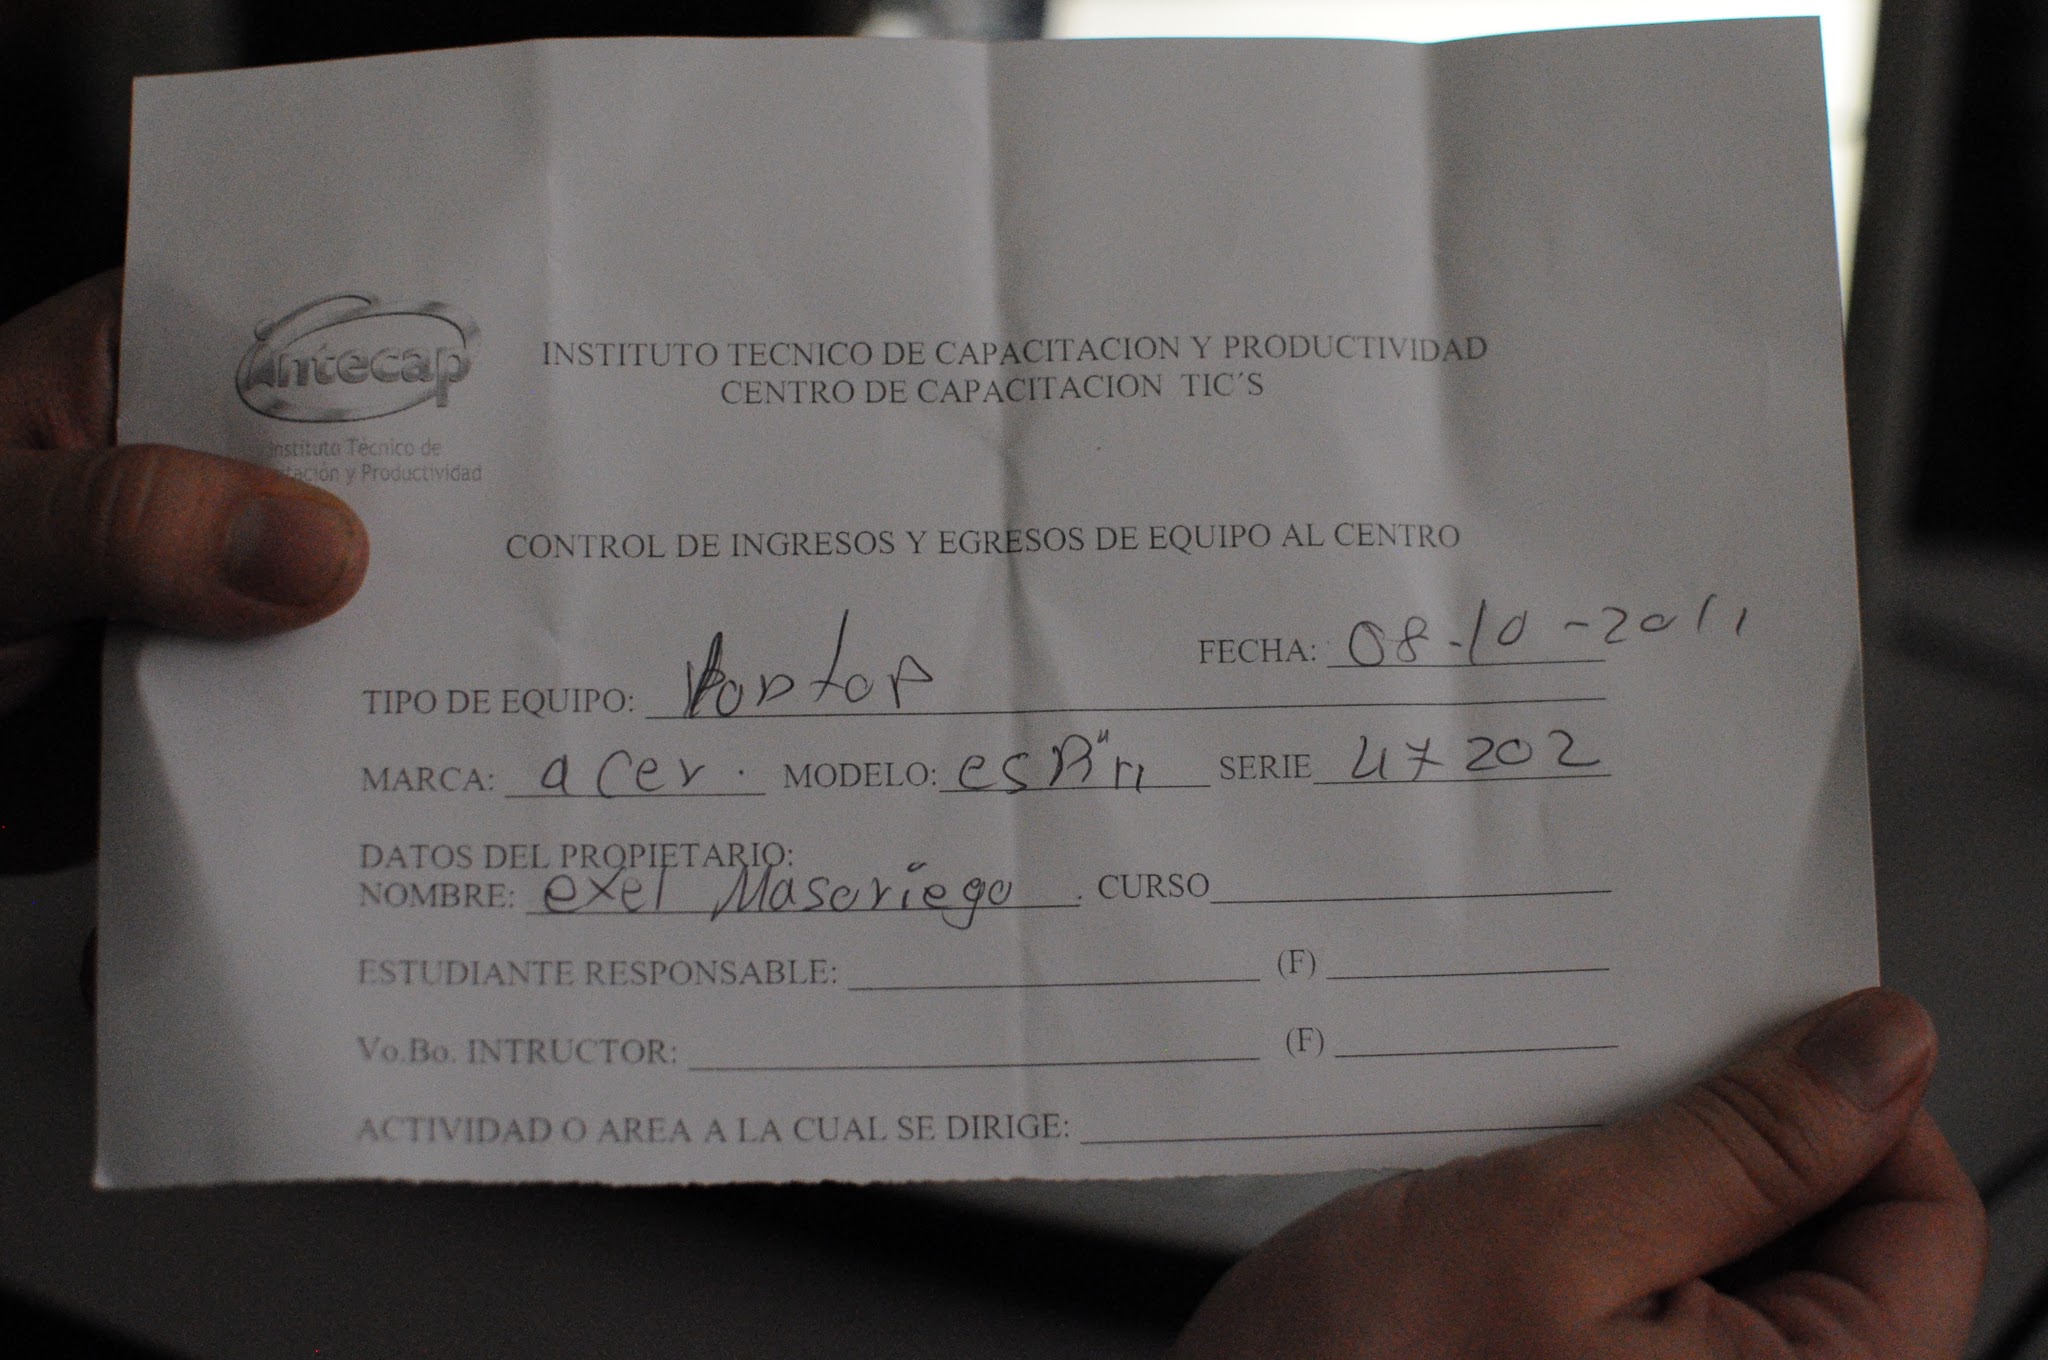 intecap
Instituto Técnico de
tación y Productividad
INSTITUTO TECNICO DE CAPACITACION Y PRODUCTIVIDAD
CENTRO DE CAPACITACION TIC´S
CONTROL DE INGRESOS Y EGRESOS DE EQUIPO AL CENTRO
FECHA: 08-10-2011
TIPO DE EQUIPO:
MARCA: acer. MODELO: SERIE 47202
DATOS DEL PROPIETARIO:
NOMBRE: exel Masariego. CURSO
ESTUDIANTE RESPONSABLE: (F)
Vo.Bo. INTRUCTOR: (F)
ACTIVIDAD O AREA A LA CUAL SE DIRIGE: